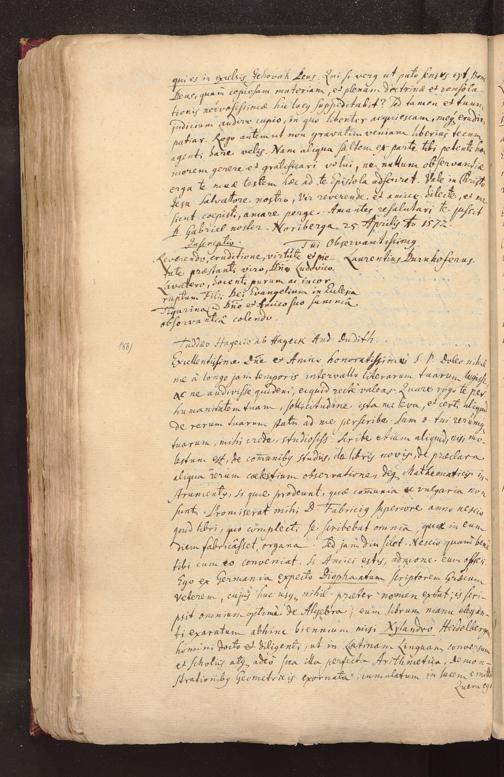 qui es in excelsis Jehovah Deus. Qui si verg ut puto sensus est, Bone
Deus, quàm copiosam materiam, et plenam doctrinæ et consola-
tionis nervosissimæ hic locg suppeditabit? Sed tamen et tuum
judicium audire cupio, in quo libenter acquiescam, meq erudiri
patiar. Rogo autem ut non gravatim veniam liberius tecum
agenti dare velis. Nam aliqua saltem ex parte tibi petenti ho,
morem gerere et gratificari volui, ne nullum observantiæ
erga te meæ testem hæc ad te Epistola adferret. Vale in Christo
Jesu salvatore nostro, Vir reverende, et amice dilecte, et me
sicut coepisti, amare perge. Amanter resalutari te jussit
D. Gabriel noster. Noriberga 25 Aprilis Ao 1572
Inscriptio.
Tui Observantissimg
Laurentius Durnhoferus.
Reverendo, eruditione, virtute et pie-
tate præstanti viro, Dno Ludovico
Lavatero, docenti purum ac incor
ruptum Filii Dei Evangelium in Ecclesia
Tigurina, Dno et Amico suo summa
observantia colendo.
Taddeo Hagecio ab Hageck And. Dudith.
Excellentissime Dne et Amice honoratissime S. P. Dolet mihi
me à longo jam temporis intervallo literarum tuarum
ac ne audivisse quidem, ecquid rectè valeas. Quare rogo te per
humanitatem tuam, sollicitudine ista me leva, et certi aliquid
de rerum tuarum statu ad me perscribe. Sum . tui rerumq
tuarum, mihi crede, studiosg. Scribe etiam aliquid, nisi mo-
lestum est, de comunibg studiis, de libris novis, de præclara
aliqua rerum coelestium observatione, deq Mathematicis in-
strumentis, si quæ prodeunt, quæ comunia et vulgaria non
sunt. Promiserat mihi D. Fabricig superiore anno nescio
quid libri, quo complecti se scribebat omnia, quæ in eum
diem fabricasset, organa. Sed jam diu silet. Nescio quàm bene
tibi cum eo conveniat. Si Amici estis, admone eum officii.
Ego ex Germania expecto Diophantum scriptorem Græcum
veterem, cujg huc usq nihil præter nomen extat; is scri-
psit omnium optimè de Algebra; eum librum manu elegan-
ti exaratum abhinc biennium misi Xylandro Heidelbergam
homini docto et diligenti, ut in Latinam Linguam conversum
et scholiis atq adeo sua illa perfecta Arithmetica, demon-
strationibg Geometricis exornata, cumulatum in lucem emittat
Quem ego